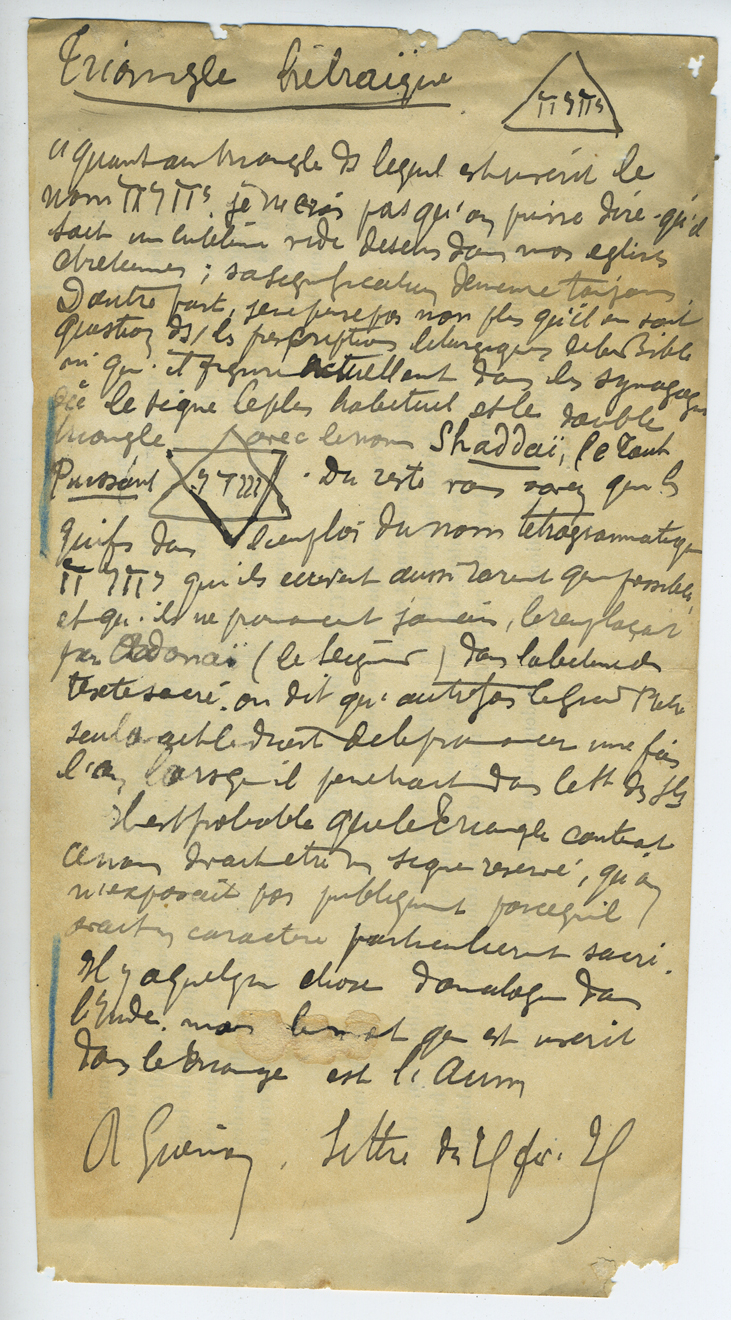 Triangle hébraïque
יהוה
"quant au triangle ds lequel est inscrit le
nom יהוה je ne crois pas qu'on puisse dire qu'il
soit un emblème vide de sens dans nos eglises
chretiennes ; sa signification demeure toujours.
D'autre part, je ne pense pas non plus qu'il en soit
question ds les prescriptions liturgiques de la Bible
ni qu'il figure actuellement dans les synagogues
où le signe le plus habituel est le double
triangle avec le nom Shaddaï, (le Tout
Puissant שדי . Du reste vous savez que les
juifs dans l'emploi du nom tetragrammatique
יהוה qu'ils ecrivent aussi rarement que possible,
et qu'ils ne prononcent jamais, le remplaçant
par Adonaï (le Seigneur) dans la lecture du
texte sacré. on dit qu'autrefois le grand Prêtre
seul avait le droit de le prononcer une fois
l'an, lorsqu'il penetrait dans le St des Sts
Il est probable que le Triangle contenant
ce nom devait etre un signe reservé, qu'on
n'exposait pas publiquement parcequ'il
avait un caractère particulierement sacré.
Il y a quelque chose d'analogue dans
l'Inde. mais le mot qui est inscrit
dans le triangle est l'Aum
R Guénon. Lettre du 25 fev. 25